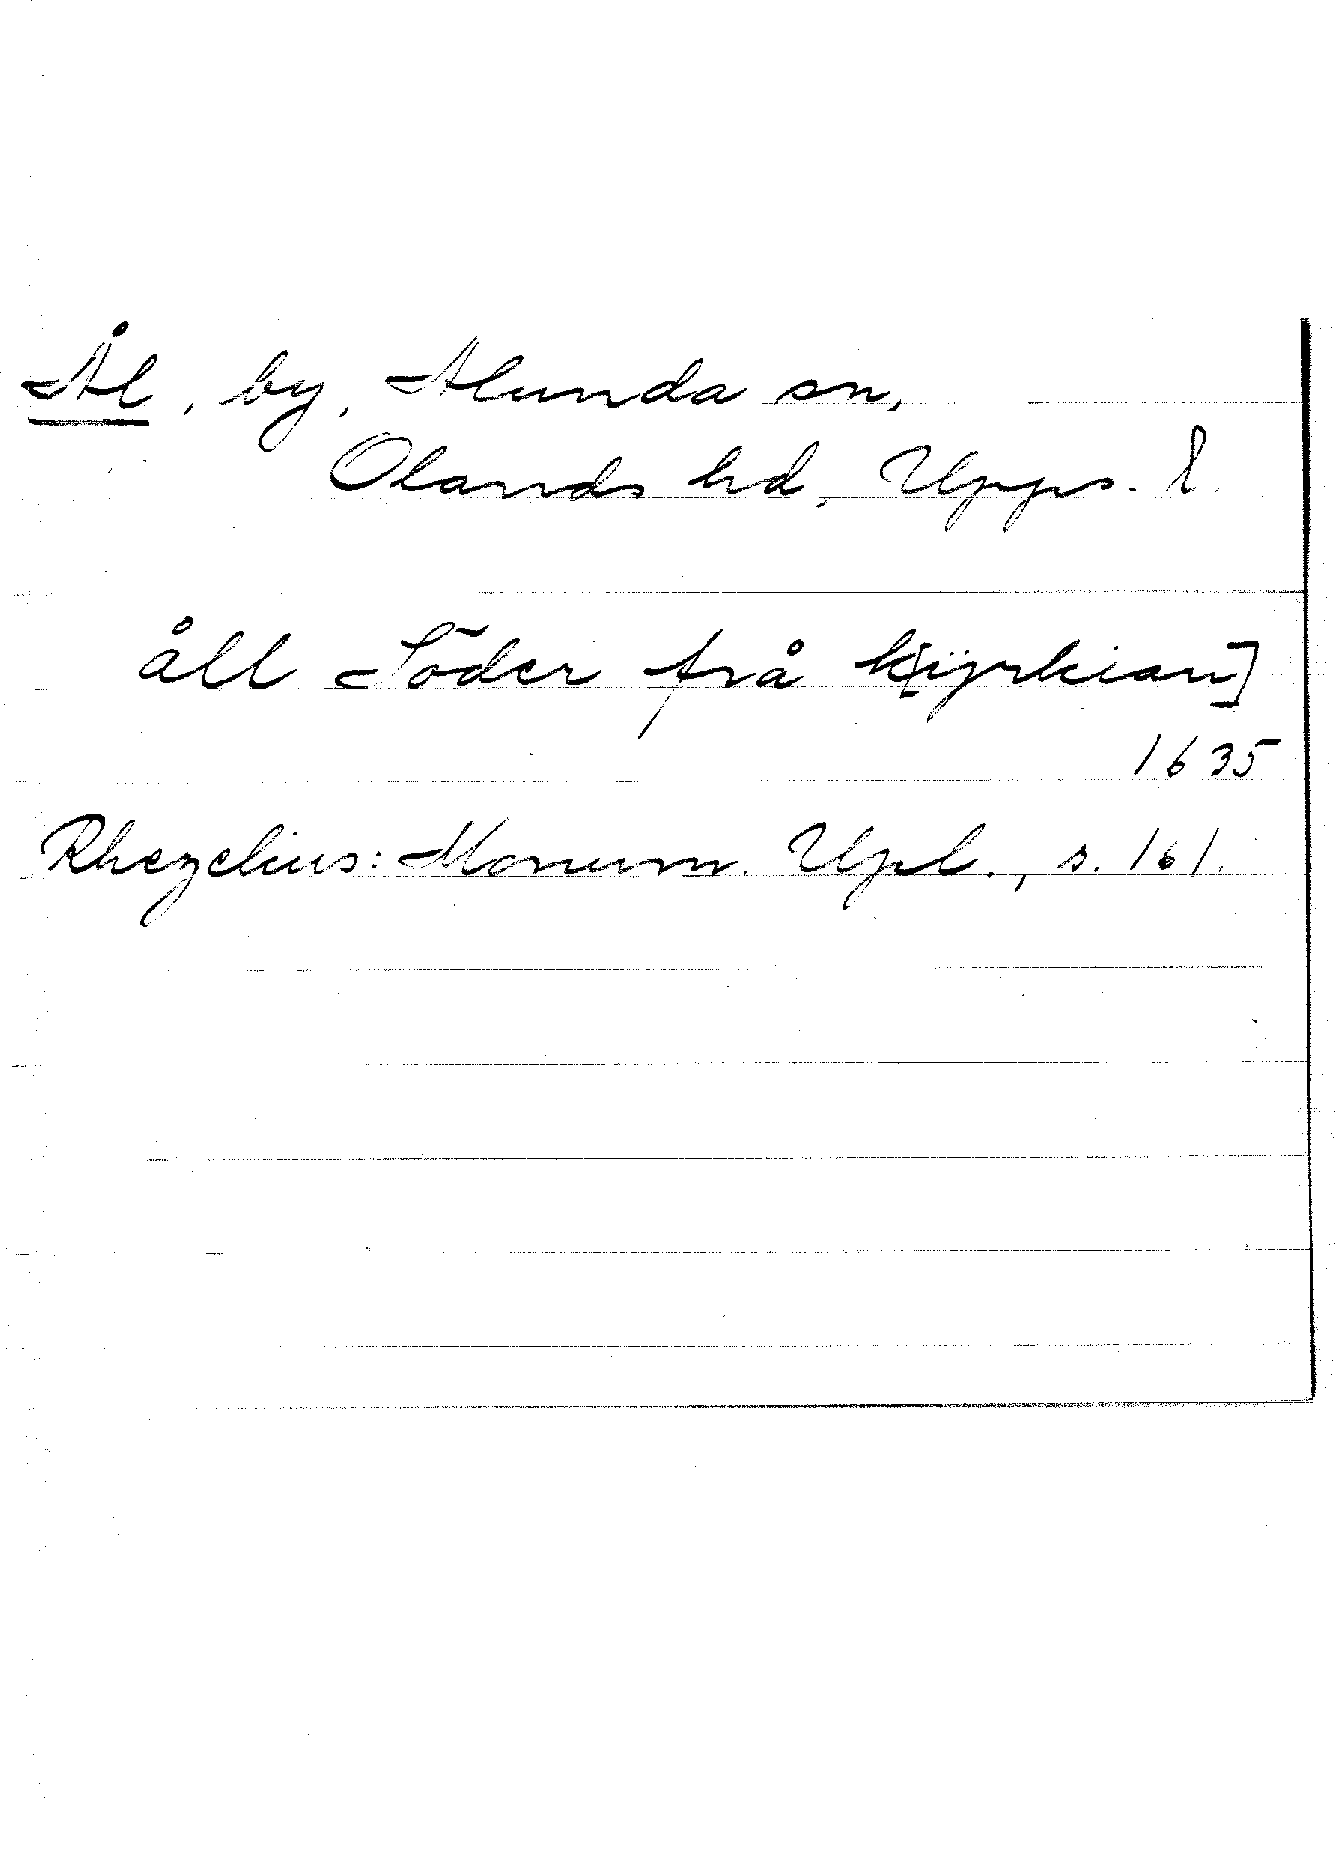 Ål, by, Alunda sn,
Olands hd, Upps. l
åll Söder frå k[ÿrkian]
1635
Rhezelius: Monum. Upl., s. 161.